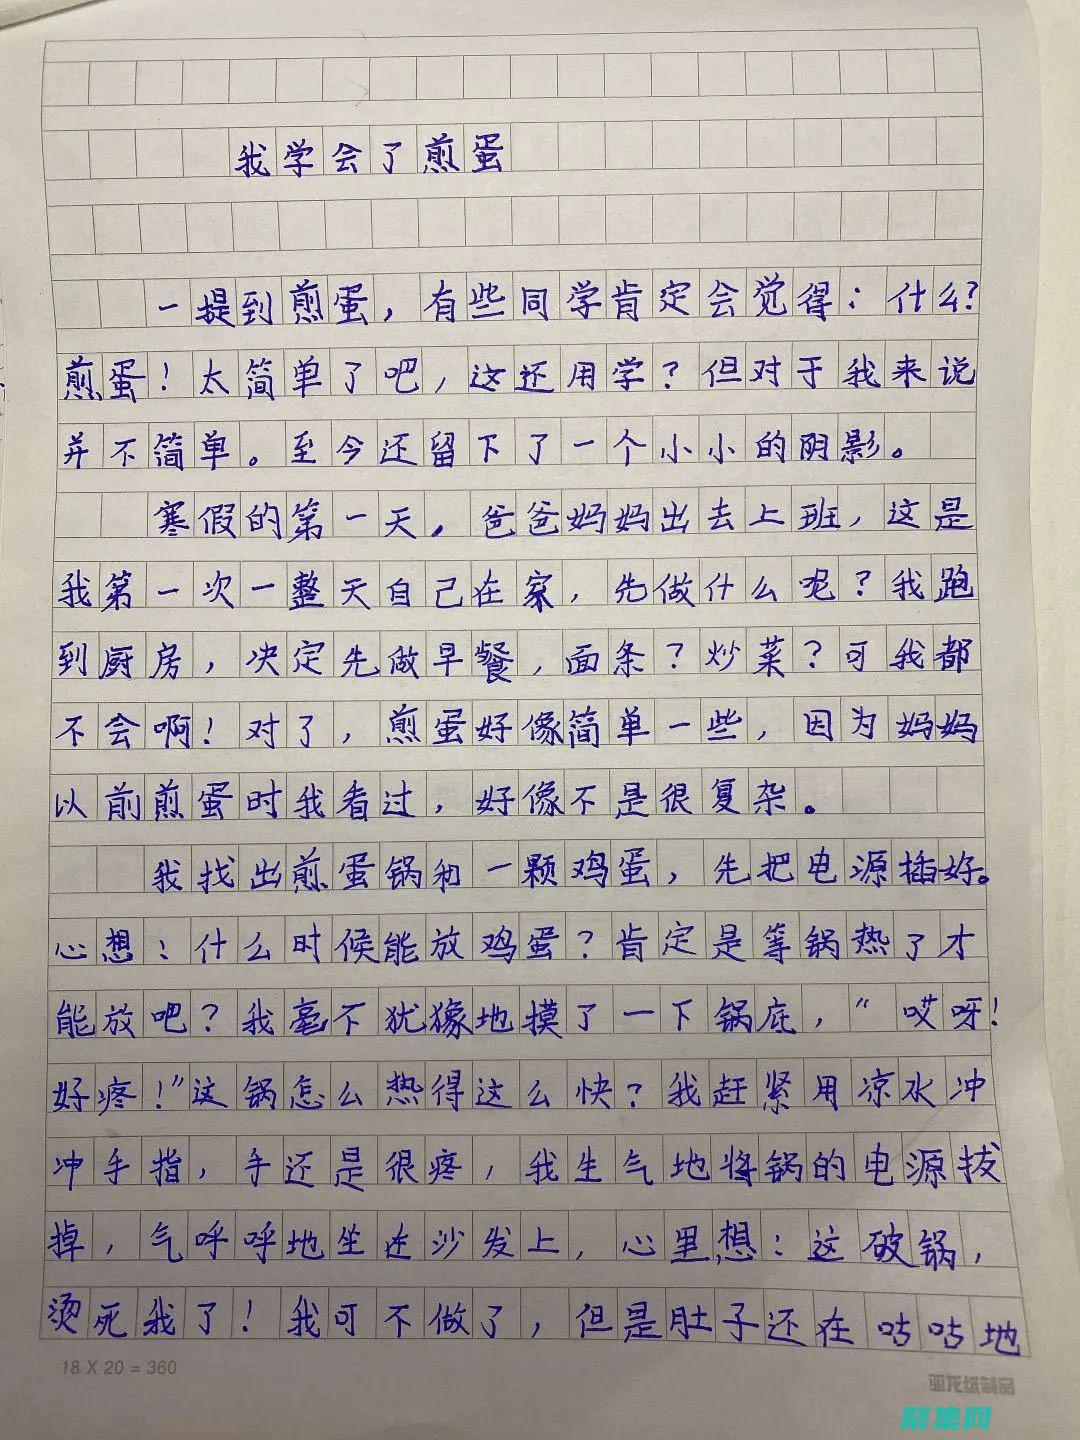 我学会了煎蛋
一提到煎蛋，有些同学肯定会觉得：什么？
煎蛋！太简单了吧，这还用学？但对于我来说
并不简单。至今还留下了一个小小的阴影。
寒假的第一天，爸爸妈妈出去上班，这是
我第一次一整天自己在家，先做什么呢？我跑
到厨房，决定先做早餐，面条？炒菜？可我都
不会啊！对了，煎蛋好像简单一些，因为妈妈
以前煎蛋时我看过，好像不是很复杂。
我找出煎蛋锅和一颗鸡蛋，先把电源插好。
心想：什么时候能放鸡蛋？肯定是等锅热了才
能放吧？我毫不犹豫地摸了一下锅底，“哎呀！
好疼！”这锅怎么热得这么快？我赶紧用凉水冲
冲手指，手还是很疼，我生气地将锅的电源拔
掉，气呼呼地坐在沙发上，心里想：这破锅，
烫死我了！我可不做了，但是肚子还在咕咕地
18 X 20 = 360
亚龙纸制品
聚集网